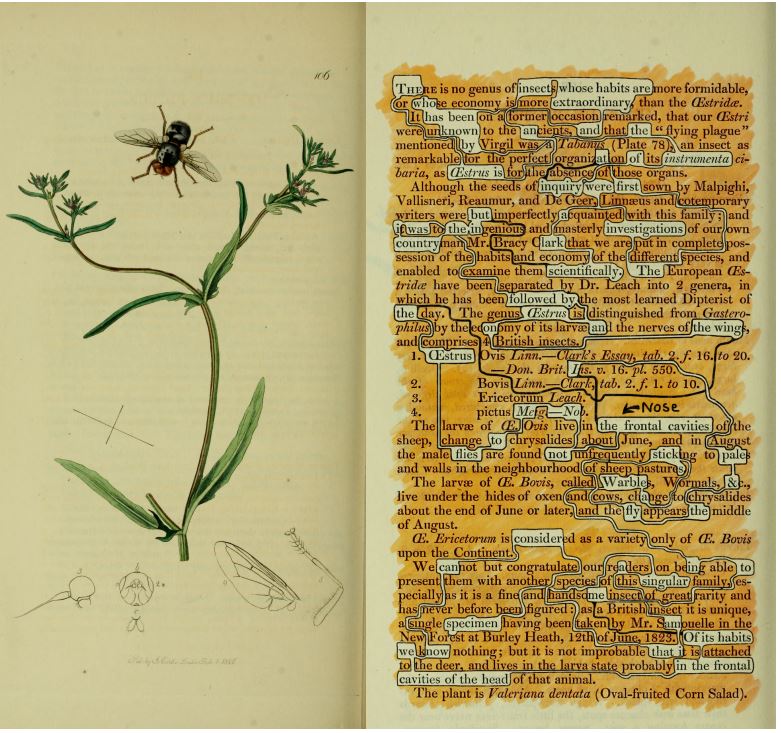 106
THERE is no genus of insects whose habits are more formidable,
or whose economy is more extraordinary, than the Œstridæ.
It has been on a former occasion remarked, that our Œstri
were unknown to the ancients, and that the "flying plague"
mentioned by Virgil was a Tabanus (Plate 78), an insect as
remarkable for the perfect organization of its instrumenta ci-
baria, as Œstrus is for the absence of those organs.
Although the seeds of inquiry were first sown by Malpighi,
Vallisneri, Reaumur, and De Geer, Linnæus and cotemporary
writers were but imperfectly acquainted with this family: and
it was to the ingenious and masterly investigations of our own
countryman Mr. Bracy Clark that we are put in complete pos-
session of the habits and economy of the different species, and
enabled to examine them scientifically. The European Œs-
tridæ have been separated by Dr. Leach into 2 genera, in
which he has been followed by the most learned Dipterist of
the day. The genus Œstrus is distinguished from Gastero-
philus by the economy of its larvæ and the nerves of the wings,
and comprises 4 British insects.
1. Œstrus Ovis Linn.—Clark's Essay, tab. 2. f. 16. to 20.
—Don. Brit. Ins. v. 16. pl. 550.
2. Bovis Linn.—Clark, tab. 2. f. 1. to 10.
3. Ericetorum Leach.
4. pictus Meig.—Nob.
← NOSE
The larvæ of Œ. Ovis live in the frontal cavities of the
sheep, change to chrysalides about June, and in August
the male flies are found not unfrequently sticking to pales
and walls in the neighbourhood of sheep pastures.
The larvæ of Œ. Bovis, called Warbles, Wormals, &c.,
live under the hides of oxen and cows, change to chrysalides
about the end of June or later, and the fly appears the middle
of August.
Œ. Ericetorum is considered as a variety only of Œ. Bovis
upon the Continent.
We cannot but congratulate our readers on being able to
present them with another species of this singular family, es-
pecially as it is a fine and handsome insect of great rarity and
has never before been figured: as a British insect it is unique,
a single specimen having been taken by Mr. Samouelle in the
New Forest at Burley Heath, 12th of June, 1823. Of its habits
we know nothing; but it is not improbable that it is attached
to the deer, and lives in the larva state probably in the frontal
cavities of the head of that animal.
The plant is Valeriana dentata (Oval-fruited Corn Salad).